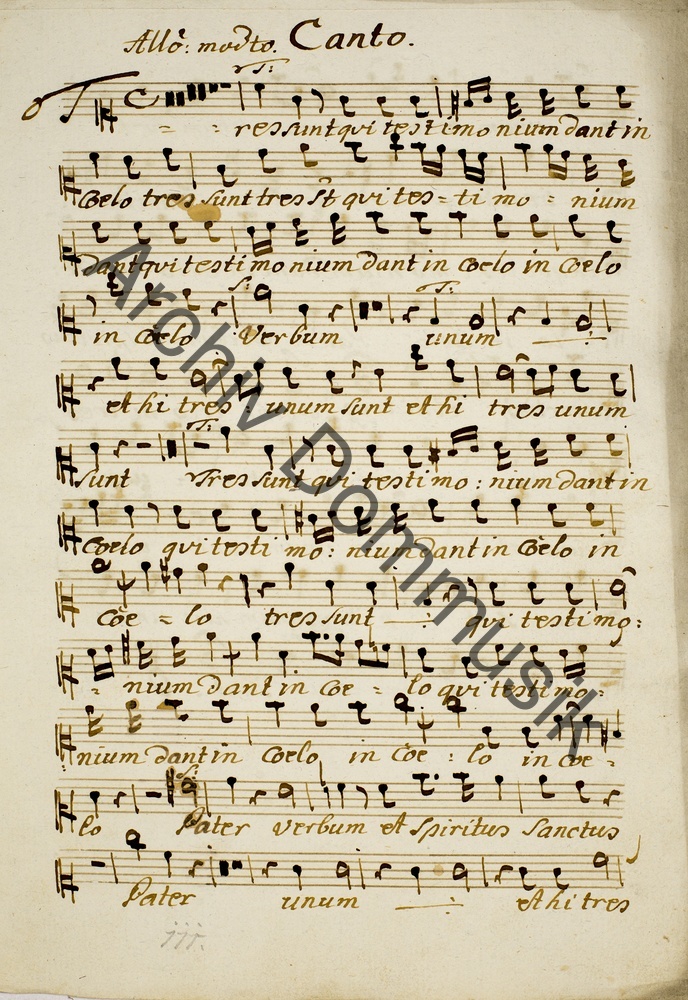 Allo: modto. Canto.
T:
T = : res sunt qui testimo nium dant in
Coelo tres sunt tres st qui tes = ti mo = nium
dant qui testimo nium dant in Coelo in Coelo
S: T:
in Coelo Verbum unum
et hi tres : unum sunt et hi tres unum
T:
sunt Tres sunt qui testimo : nium dant in
Coelo qui testi mo : nium dant in Coelo in
Coe = lo tres sunt qui testimo :
= nium dant in Coe = lo qui testimo =
nium dant in Coelo in Coe : lo in Coe =
S:
lo Pater Verbum et Spiritus Sanctus
Pater unum et hi tres
iii.
Archiv Dommusik